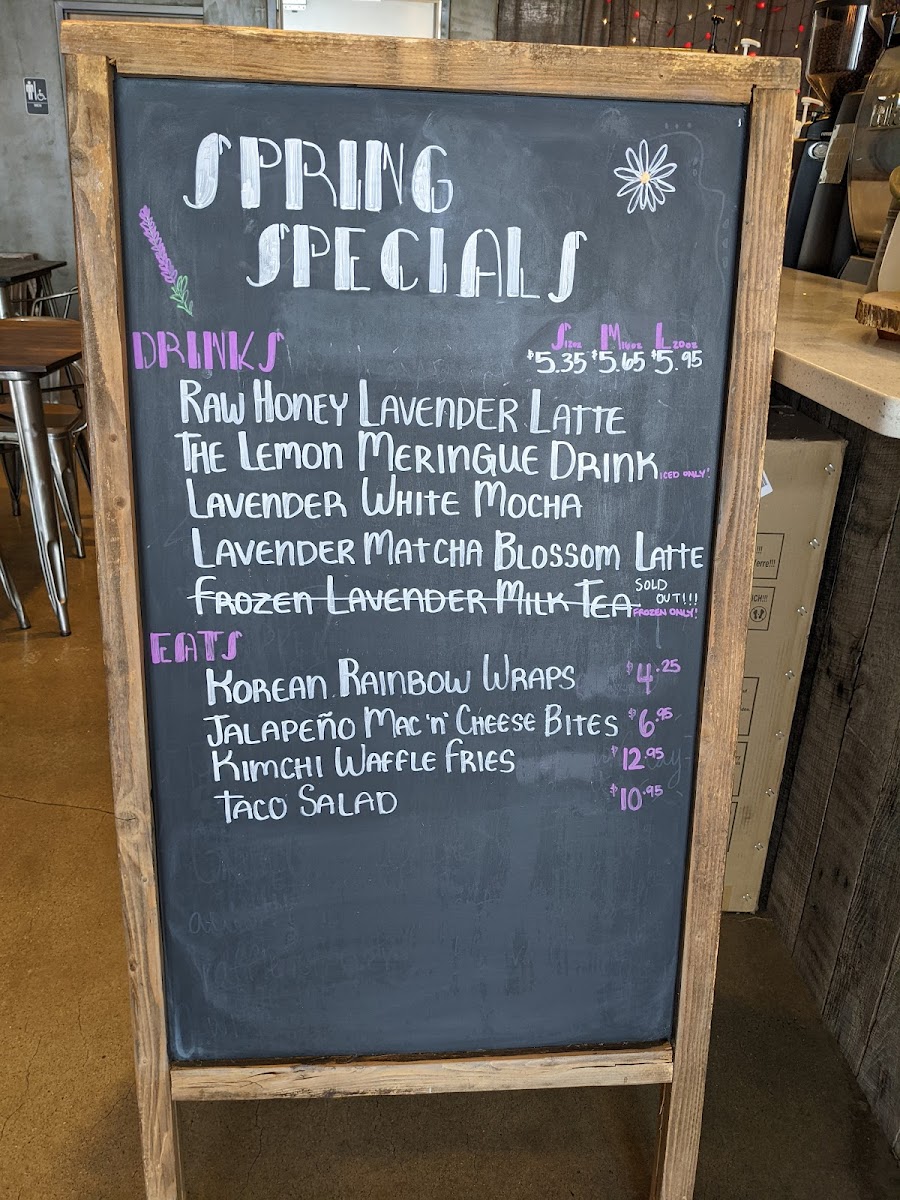 SPRING
SPECIALS
DRINKS
S 12oz M 16oz L 20oz
$5.35 $5.65 $5.95
RAW HONEY LAVENDER LATTE
THE LEMON MERINGUE DRINK ICED ONLY!
LAVENDER WHITE MOCHA
LAVENDER MATCHA BLOSSOM LATTE
FROZEN LAVENDER MILK TEA SOLD OUT!!!
FROZEN ONLY!
EATS
KOREAN RAINBOW WRAPS $4.25
JALAPEÑO MAC 'N' CHEESE BITES $6.95
KIMCHI WAFFLE FRIES $12.95
TACO SALAD $10.95